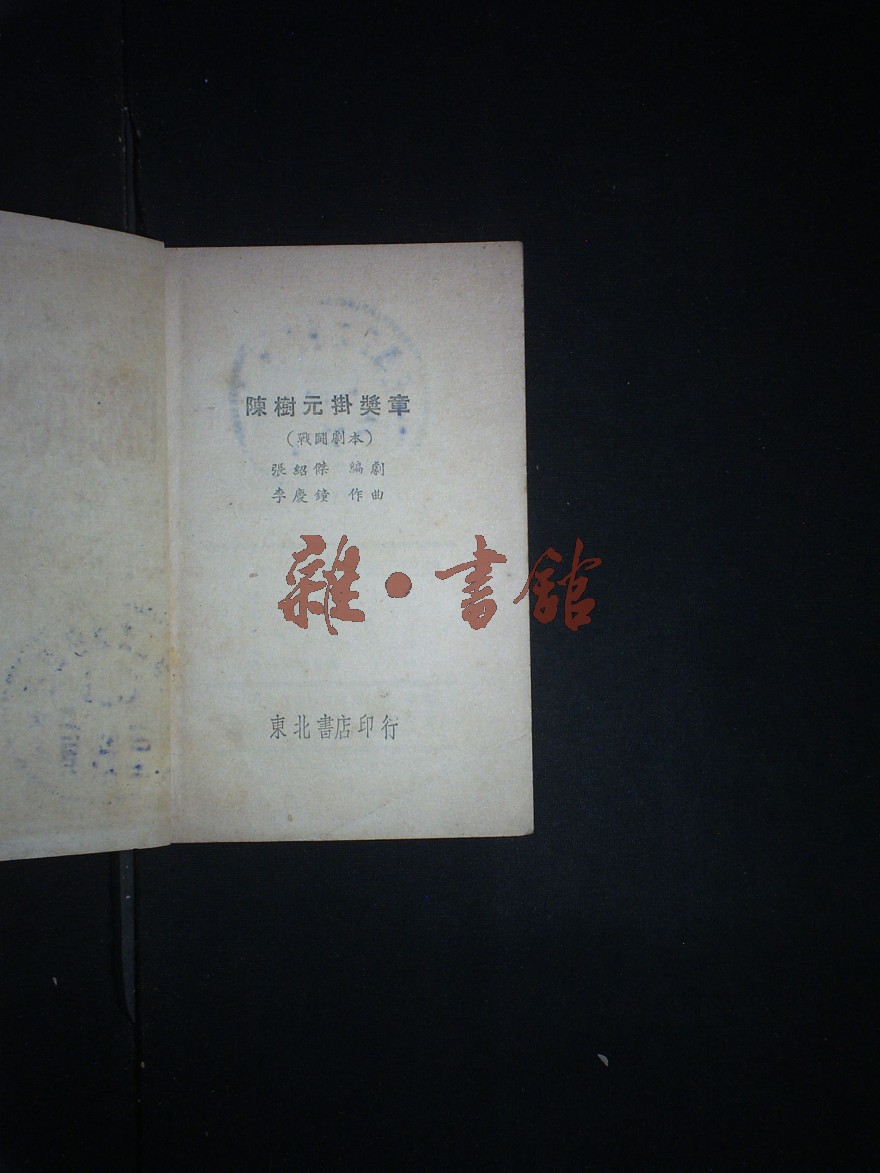 陳樹元掛奬章
（戰鬪劇本）
張紹傑 編劇
李慶鐘 作曲
雜·書館
東北書店印行